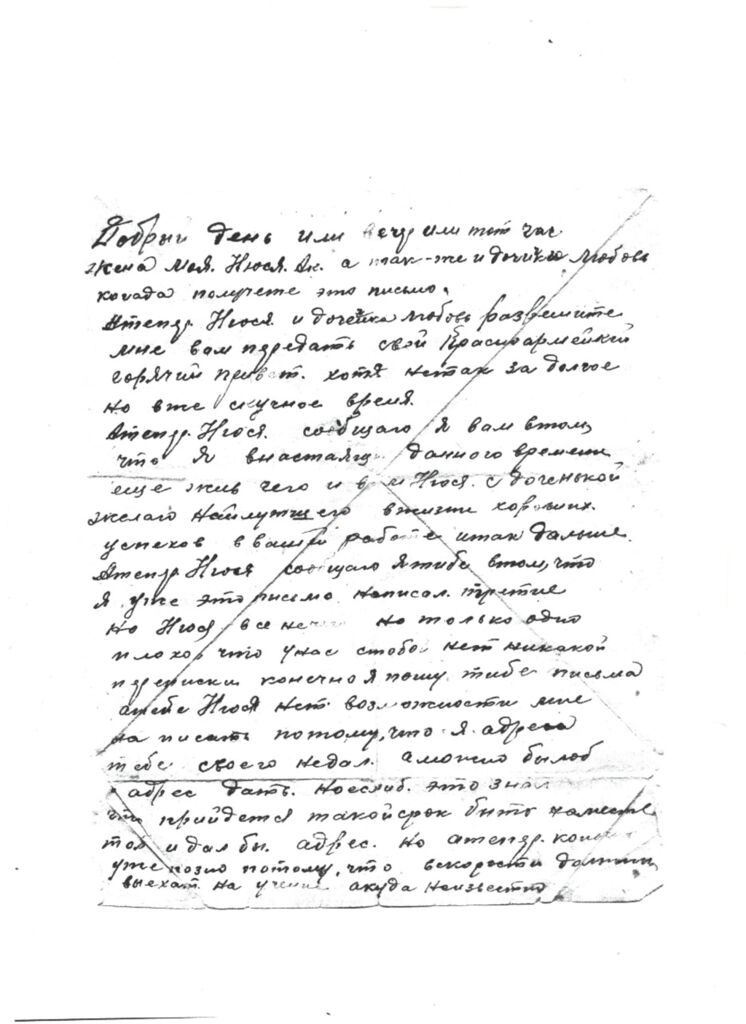 Добрый день или вечр или тот час
жена моя. Нюся. Ак. а так-же и дочика Любовь
когада получете это письмо.
Атепер Нюся и дочечка Любовь разрешите
мне вам передать свой Красноармейский
горячий привет. хотя нетак за долгое
но вже скучное время.
Атепер. Нюся. сообщаю я вам втом,
что я внастаящ данного времени
еще жив чего и в м Нюся. с доченькой
желаю Найлутщего вжизни хороших.
успехов ввашей работе итак дальше.
Атепер Нюся сообщаю я тибе втом, что
я уже это письмо написал. третие
но Нюся все нечего но только одно
плохо что унас стобой нет никакой
переписки конечно я пошу тибе письма
атебе Нюся нет. возможности мне
на писать потому, что я. адреса
тебе своего недал. аможно былоб
адрес дать. Ноеслиб. это знал
что прийдется такойсрок быть наместе
той идал бы. адрес. но атепер. конешн
уже позно потому, что вскорости должны
выехат на учение акуда неизвестно